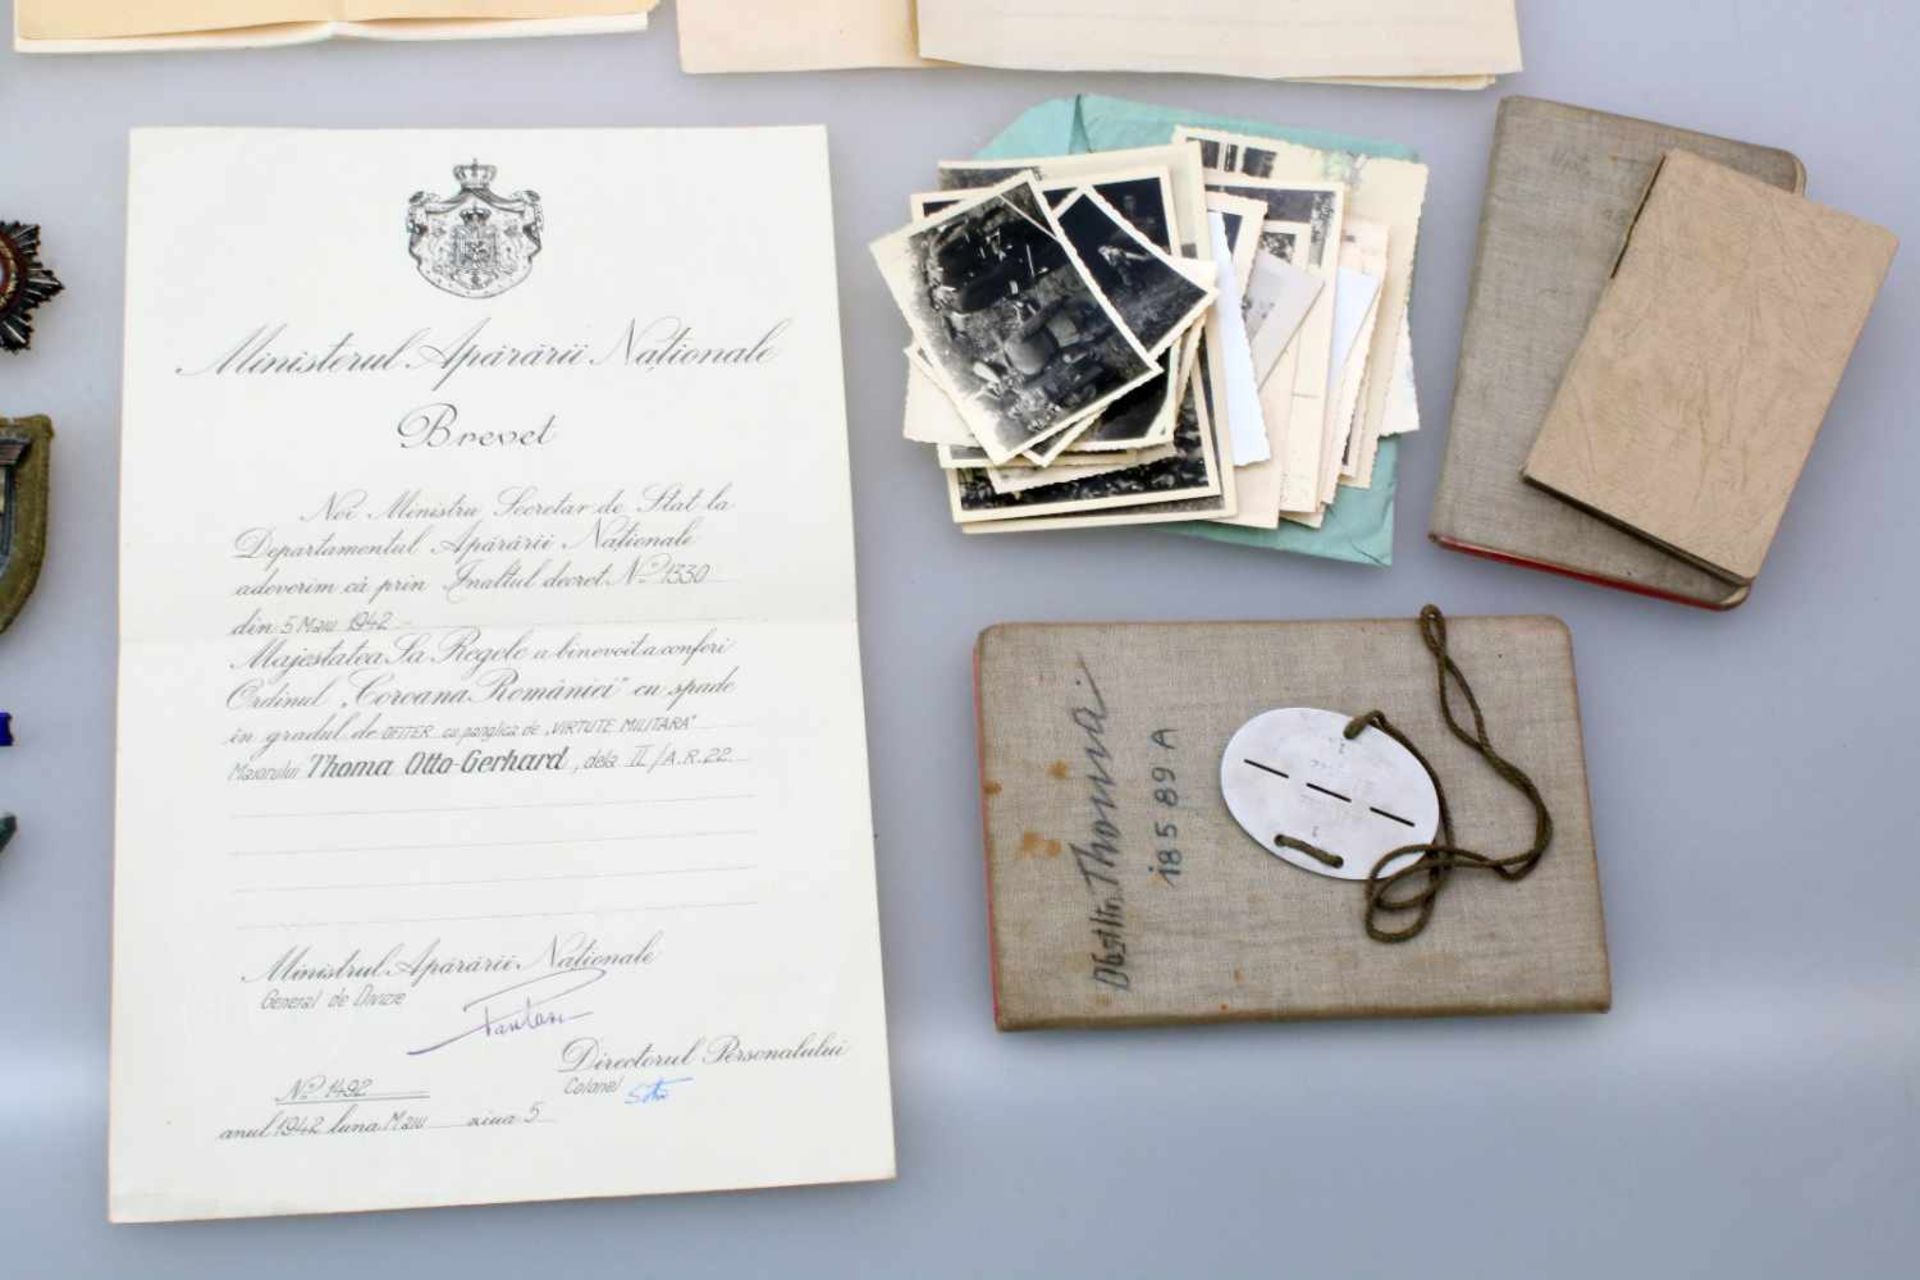 Ministerul Apărării Naționale
Brevet
Noi Ministru Secretar de Stat la
Departamentul Apărării Naționale
adeverim că prin Inaltul decret Nº 1330
din 5 Maiu 1942
Majestatea Sa Regele a binevoit a conferi
Ordinul „Coroana României" cu spade
in gradul de OFITER cu panglica de „VIRTUTE MILITARA"
Maiorului Thoma Otto-Gerhard, dela II/A.R.22.
Ministrul Apărării Naționale
General de Divizie
Directorul Personalului
Colonel
Nº 1492
anul 1942 luna Maiu ziua 5
Obstltn. Thoma
18589 A